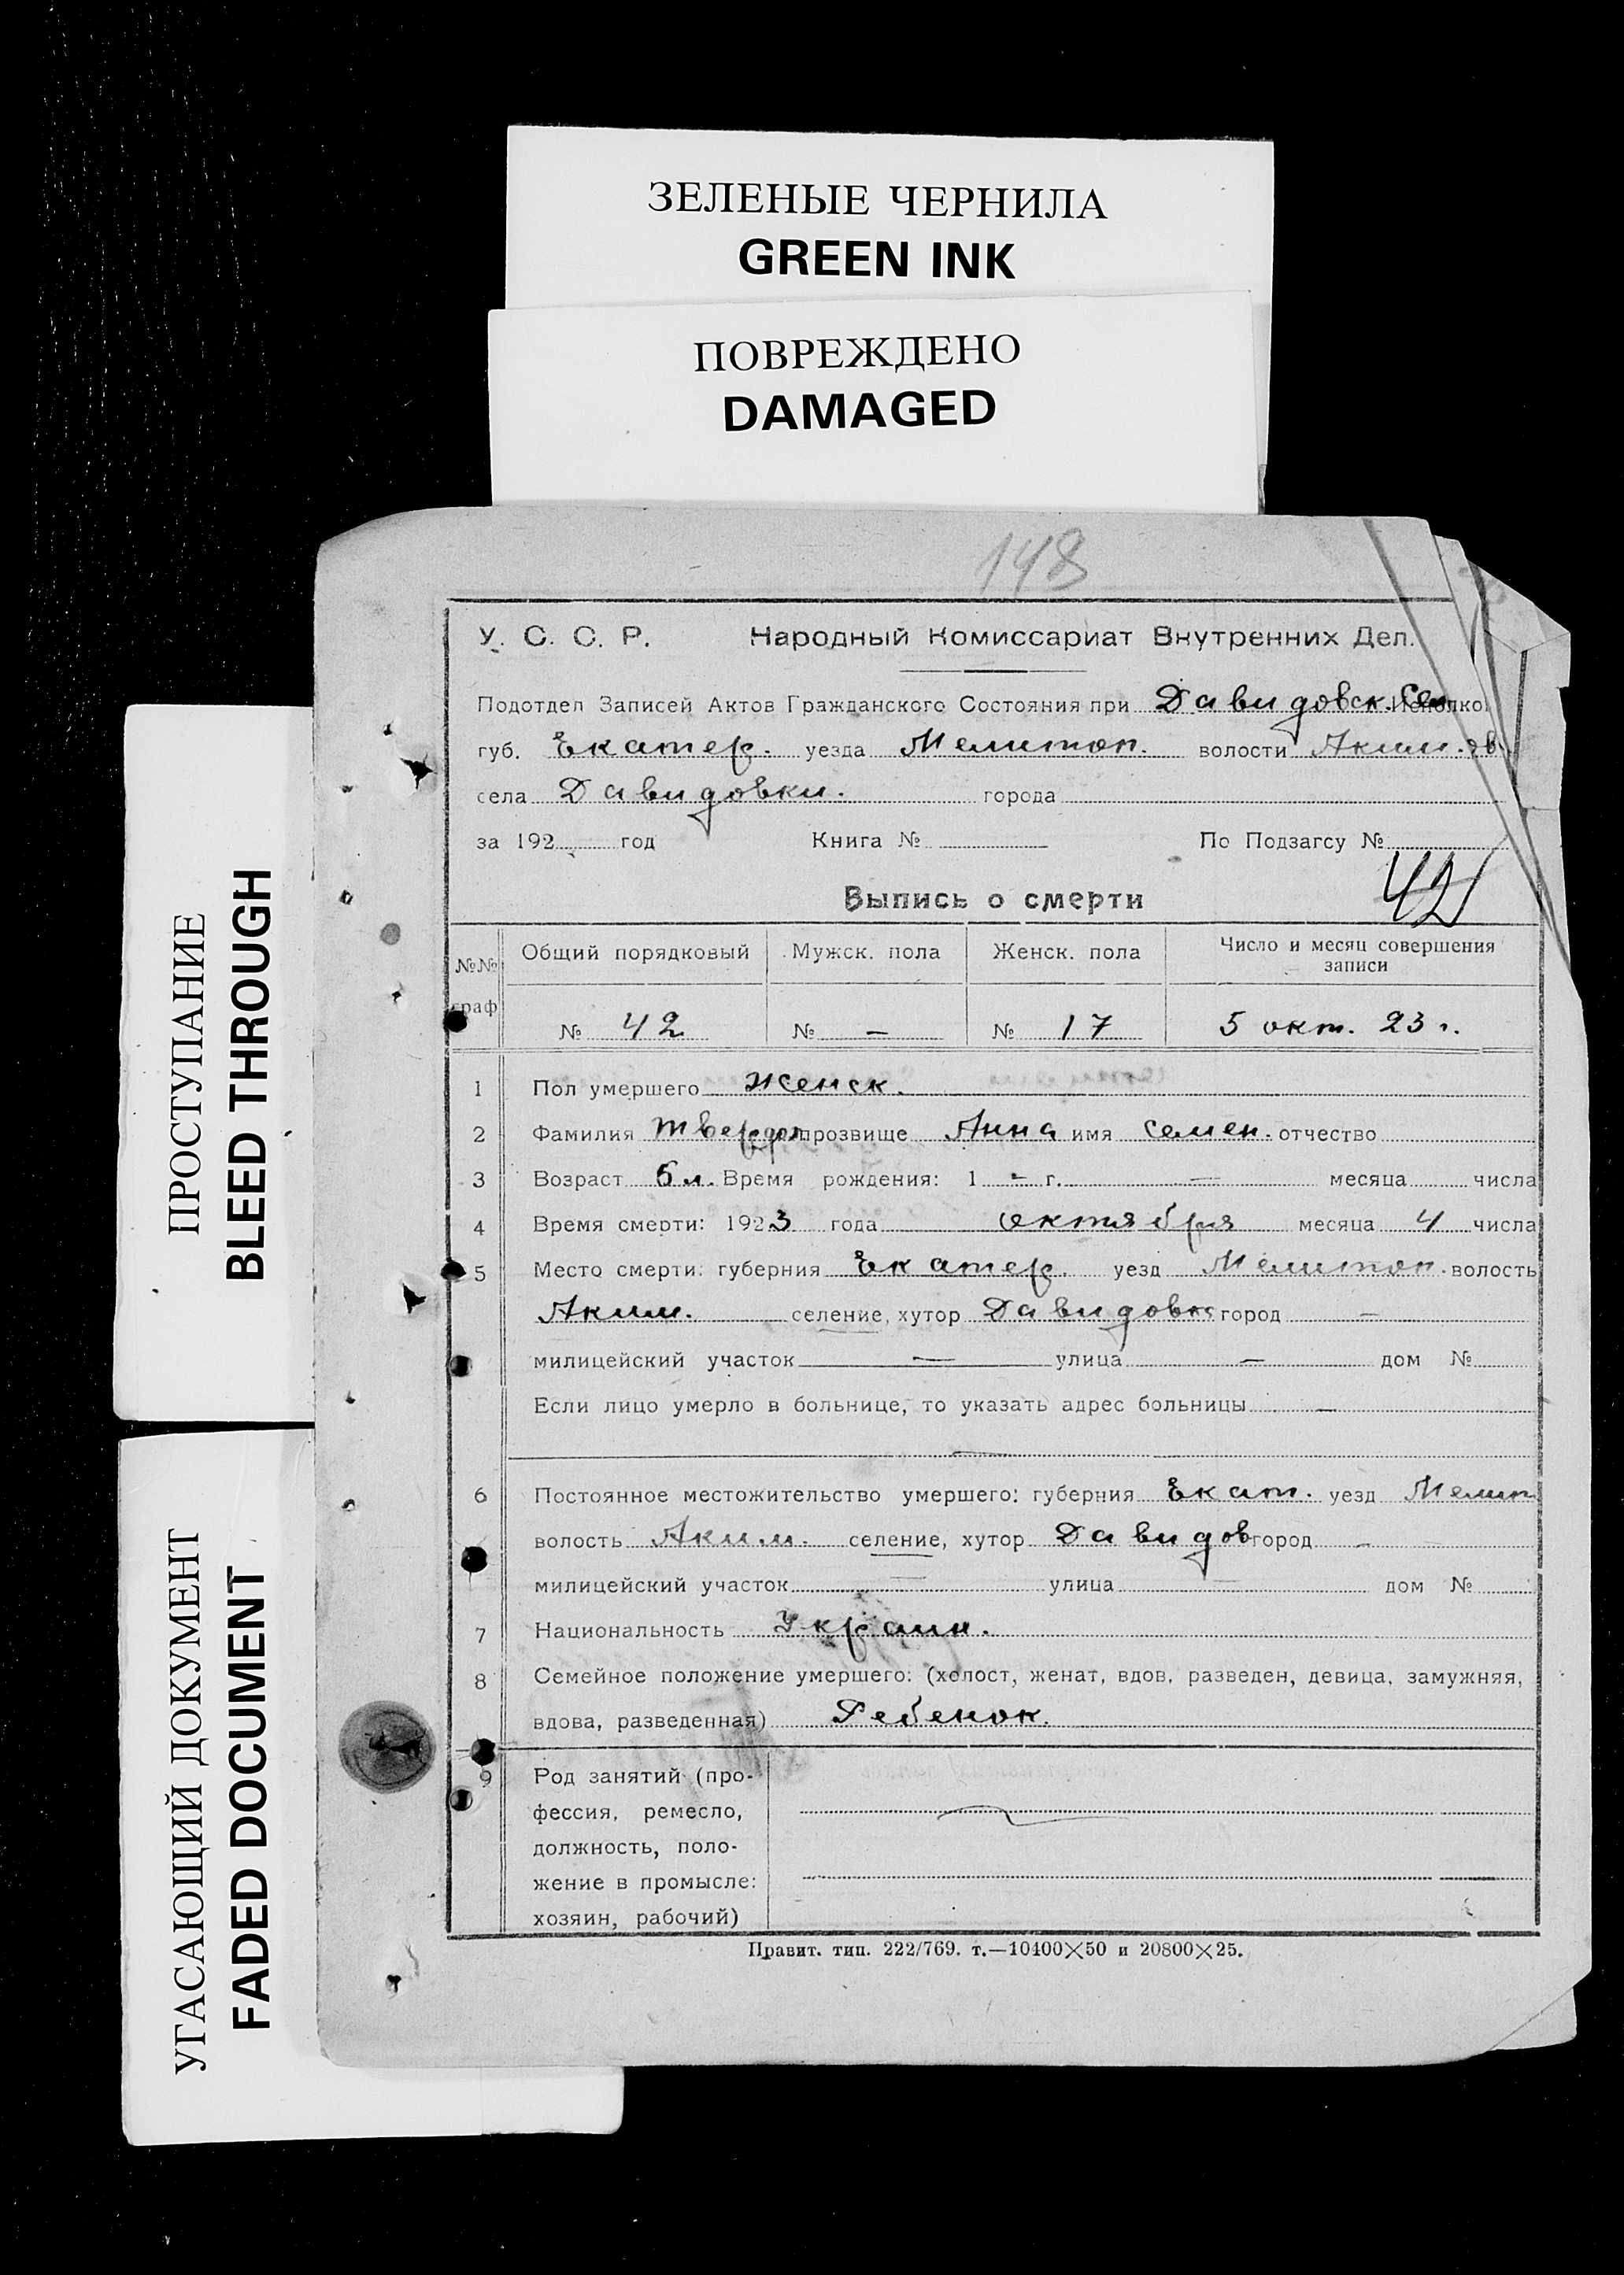 ЗЕЛЕНЫЕ ЧЕРНИЛА
GREEN INK
ПОВРЕЖДЕНО
DAMAGED
ПРОСТУПАНИЕ
BLEED THROUGH
УГАСАЮЩИЙ ДОКУМЕНТ
FADED DOCUMENT
148
У. С. С. Р. Народный Комиссариат Внутренних Дел.
Подотдел Записей Актов Гражданского Состояния при Давидовск. Сел
губ. Екатер. уезда Мелитоп. волости Аким.
села Давидовки. города
за 192 год Книга № По Подзагсу №
42
Выпись о смерти
№№ граф Общий порядковый Мужск. пола Женск. пола Число и месяц совершения записи
№ 42 № — № 17 5 окт. 23 г.
1 Пол умершего Женск.
2 Фамилия прозвище Анна имя Семен. отчество
3 Возраст л. Время рождения: 1 - г. — месяца числа
4 Время смерти: 1923 года октября месяца 4 числа
5 Место смерти: губерния Екатер. уезд Мелитоп. волость
Аким. селение, хутор Давидовк город —
милицейский участок — улица — дом №
Если лицо умерло в больнице, то указать адрес больницы —
—
6 Постоянное местожительство умершего: губерния Екат. уезд Мелит
волость Аким. селение, хутор Давидов город -
милицейский участок — улица — дом №
7 Национальность Украин.
8 Семейное положение умершего: (холост, женат, вдов, разведен, девица, замужняя,
вдова, разведенная) Ребенок.
9 Род занятий (про-
фессия, ремесло,
должность, поло-
жение в промысле:
хозяин, рабочий)
Правит. тип. 222/769. т.—10400×50 и 20800×25.